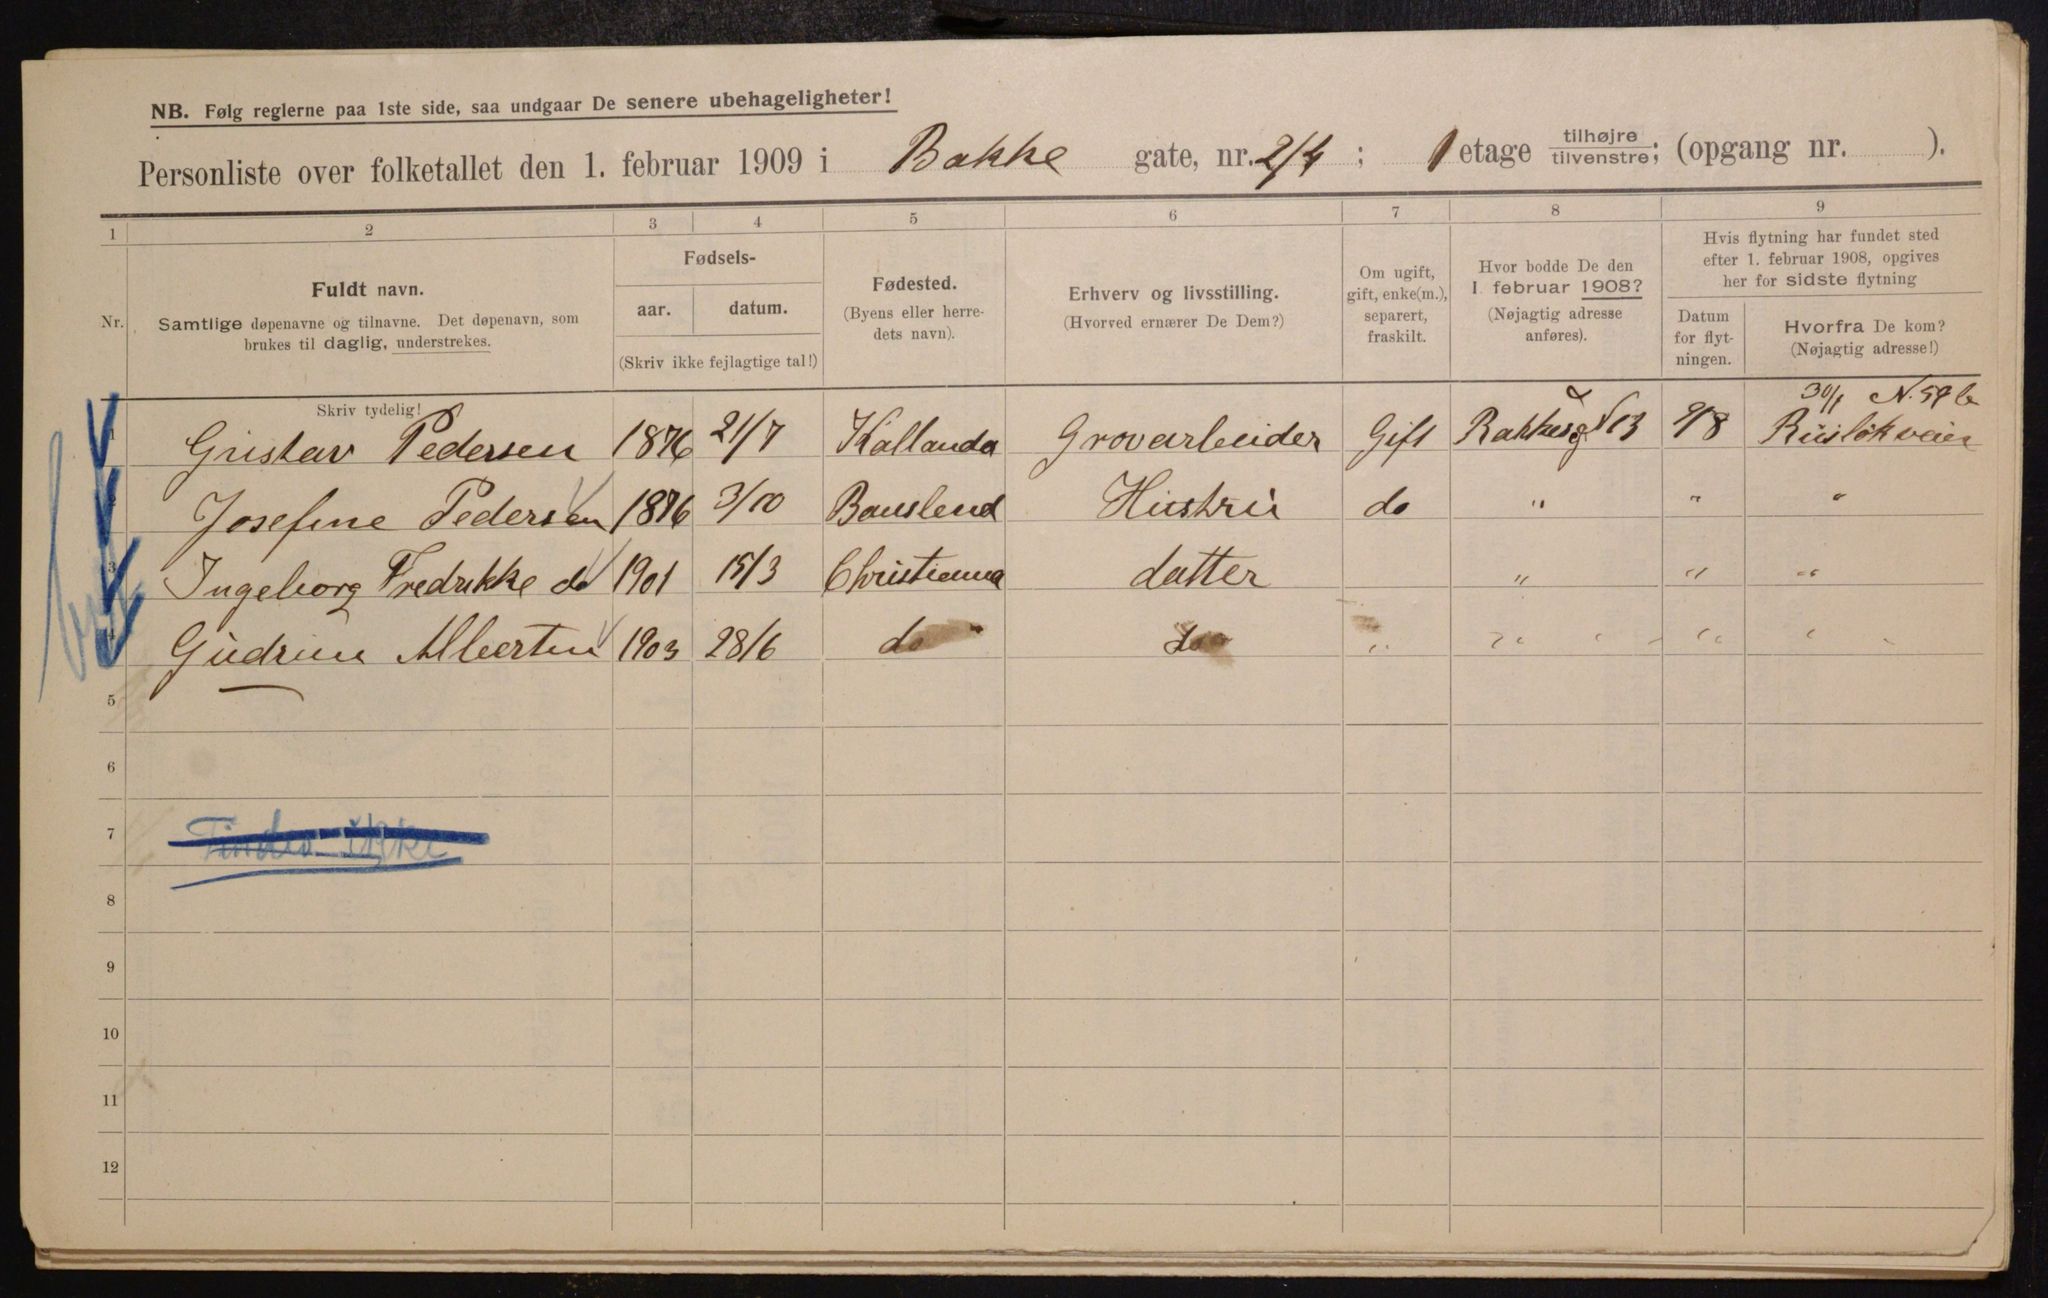 NB. Følg reglerne paa 1ste side, saa undgaar De senere ubehageligheter!
Personliste over folketallet den 1. februar 1909 i Bakke gate, nr. 2/4; 1 etage tilhøjre/tilvenstre; (opgang nr. ).
1 2 3 4 5 6 7 8 9
Nr.
Fuldt navn.
Samtlige døpenavne og tilnavne. Det døpenavn, som
brukes til daglig, understrekes.
Skriv tydelig!
Fødsels-
aar. datum.
(Skriv ikke fejlagtige tal!)
Fødested.
(Byens eller herre-
dets navn).
Erhverv og livsstilling.
(Hvorved ernærer De Dem?)
Om ugift,
gift, enke(m.),
separert,
fraskilt.
Hvor bodde De den
1. februar 1908?
(Nøjagtig adresse
anføres).
Hvis flytning har fundet sted
efter 1. februar 1908, opgives
her for sidste flytning
Datum
for flyt-
ningen.
Hvorfra De kom?
(Nøjagtig adresse!)
30/1 N. 59 b
1 Gustav Pedersen 1876 21/7 Kallanda Grovarbeider Gift Bakkesg N 13 9/8 Rusløkveien
2 Josefine Pedersen 1876 3/10 Bauslend Hustru do " " "
3 Ingeborg Fredrikke do 1901 15/3 Christiania datter " " "
4 Gudrun Albertin 1903 28/6 do do " " " "
5
6
7 Findes ikke
8
9
10
11
12